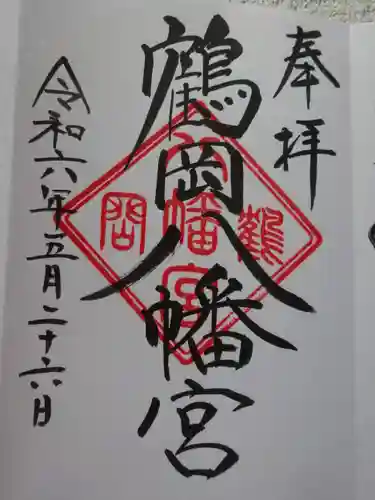 奉拝
鶴岡八幡宮
令和六年五月二十六日
鶴
八幡宮
岡